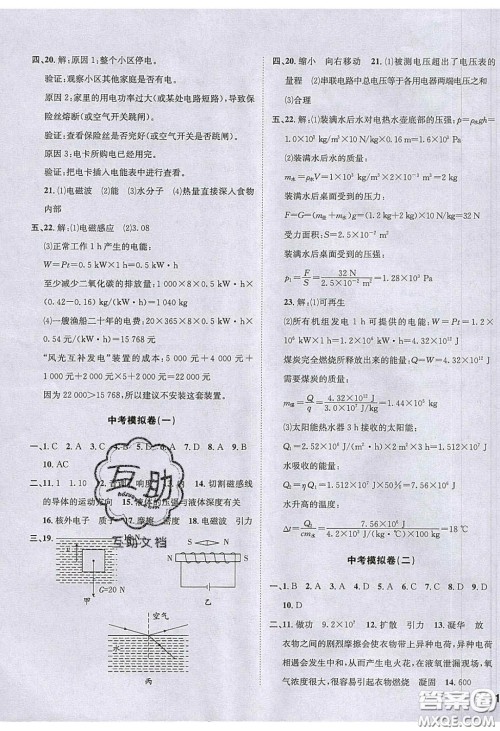 四、20. 解：原因1：整个小区停电。
验证：观察小区其他家庭是否有电。
原因2：家里的用电功率过大(或某处电路短路)，导致保
险丝熔断(或空气开关跳闸)。
验证：查看保险丝是否完好(或空气开关是否跳闸)。
原因3：电卡所购电已用完。
验证：把电卡插入电能表中进行查看。
21. (1)电磁波 (2)能 (3)水分子 (4)热量直接深入食物
内部
五、22. 解：(1)电磁感应 (2)3.08
(3)正常工作1 h产生的电能：
W＝Pt＝0.5 kW×1 h＝0.5 kW·h
至少减少二氧化碳的排放量：1 000×8×0.5 kW·h×
(0.42－0.16) kg/(kW·h)＝1 040 kg
(4)一艘渔船二十年的电费：20×365×8×0.5 kW·h×
0.54 元/(kW·h)＝15 768 元
“风光互补发电”装置的成本：5 000 元＋4 000 元＋
1 600 元＋1 400 元＋2 000 元×5＝22 000 元
因为22 000＞15 768，所以不应该安装这套装置。
中考模拟卷(一)
一、1. C 2. A 3. A 4. C 5. B 6. A 7. D 8. D 9. D
10. AC
二、11. 10 1
14. 切割磁感线
的导体的运动方向 15. 液体的压强与液体深度有关
16. 核外电子 质子 17. 摩擦 温度 18. 电磁波 引力
三、19.
G=20 N
甲
S N
N S
乙
空气
水
丙
互助
互助文档
四、20. 缩小 向右移动 21. (1)被测电压超出了电压表的
量程 (2)串联电路中总电压等于各用电器两端电压之和
(3)合理
五、22. 解：(1)装满水后水对电热水壶底部的压强：p＝ρ水gh＝
1.0×10³ kg/m³×10 N/kg×0.16 m＝1.6×10³ Pa
(2)装满水后水的质量：
m水＝ρ水V＝1×10³ kg/m³×2×10⁻³ m³＝2 kg
装满水后桌面受到的压力：
F＝G＝(m水＋m壶)g＝(2 kg＋1.2 kg)×10 N/kg＝32 N
受力面积：S＝2.5×10⁻² m²
装满水后桌面受到的压强：
p₁＝F/S＝32 N/2.5×10⁻² m²＝1.28×10³ Pa
23. 解：(1)可再生
(2)所有机组发电1 h可提供的电能：
W＝Pt＝1.2×10⁹ W×3 600 s＝4.32×10¹² J
煤炭完全燃烧所释放出来的能量：Q＝W＝4.32×10¹² J
m煤＝Q/q＝4.32×10¹² J/3.0×10⁷ J/kg＝1.44×10⁵ kg
(3)太阳能热水器3 h吸收的热量：
Q₁＝2.52×10⁶ J×2×3＝1.512×10⁷ J
水所吸收的热量：
Q₂＝ηQ₁＝50%×1.512×10⁷ J＝7.56×10⁶ J
水升高的温度：
Δt＝Q₂/cm水＝7.56×10⁶ J/4.2×10³ J/(kg·℃)×100 kg＝18 ℃
中考模拟卷(二)
一、1. B 2. B 3. C 4. A 5. C 6. C 7. A 8. D 9. D
10. D
二、11. 做功 9.2×10⁷ 12. 扩散 引力 13. 凝华 放
衣物之间的剧烈摩擦会使衣物带上异种电荷，异种电荷
相互吸引而放电，从而产生电火花，在液氧泄漏现场，氧
气浓度很高，很容易引起衣物燃烧 凝固 14. 600
答案圈
MXQE.COM